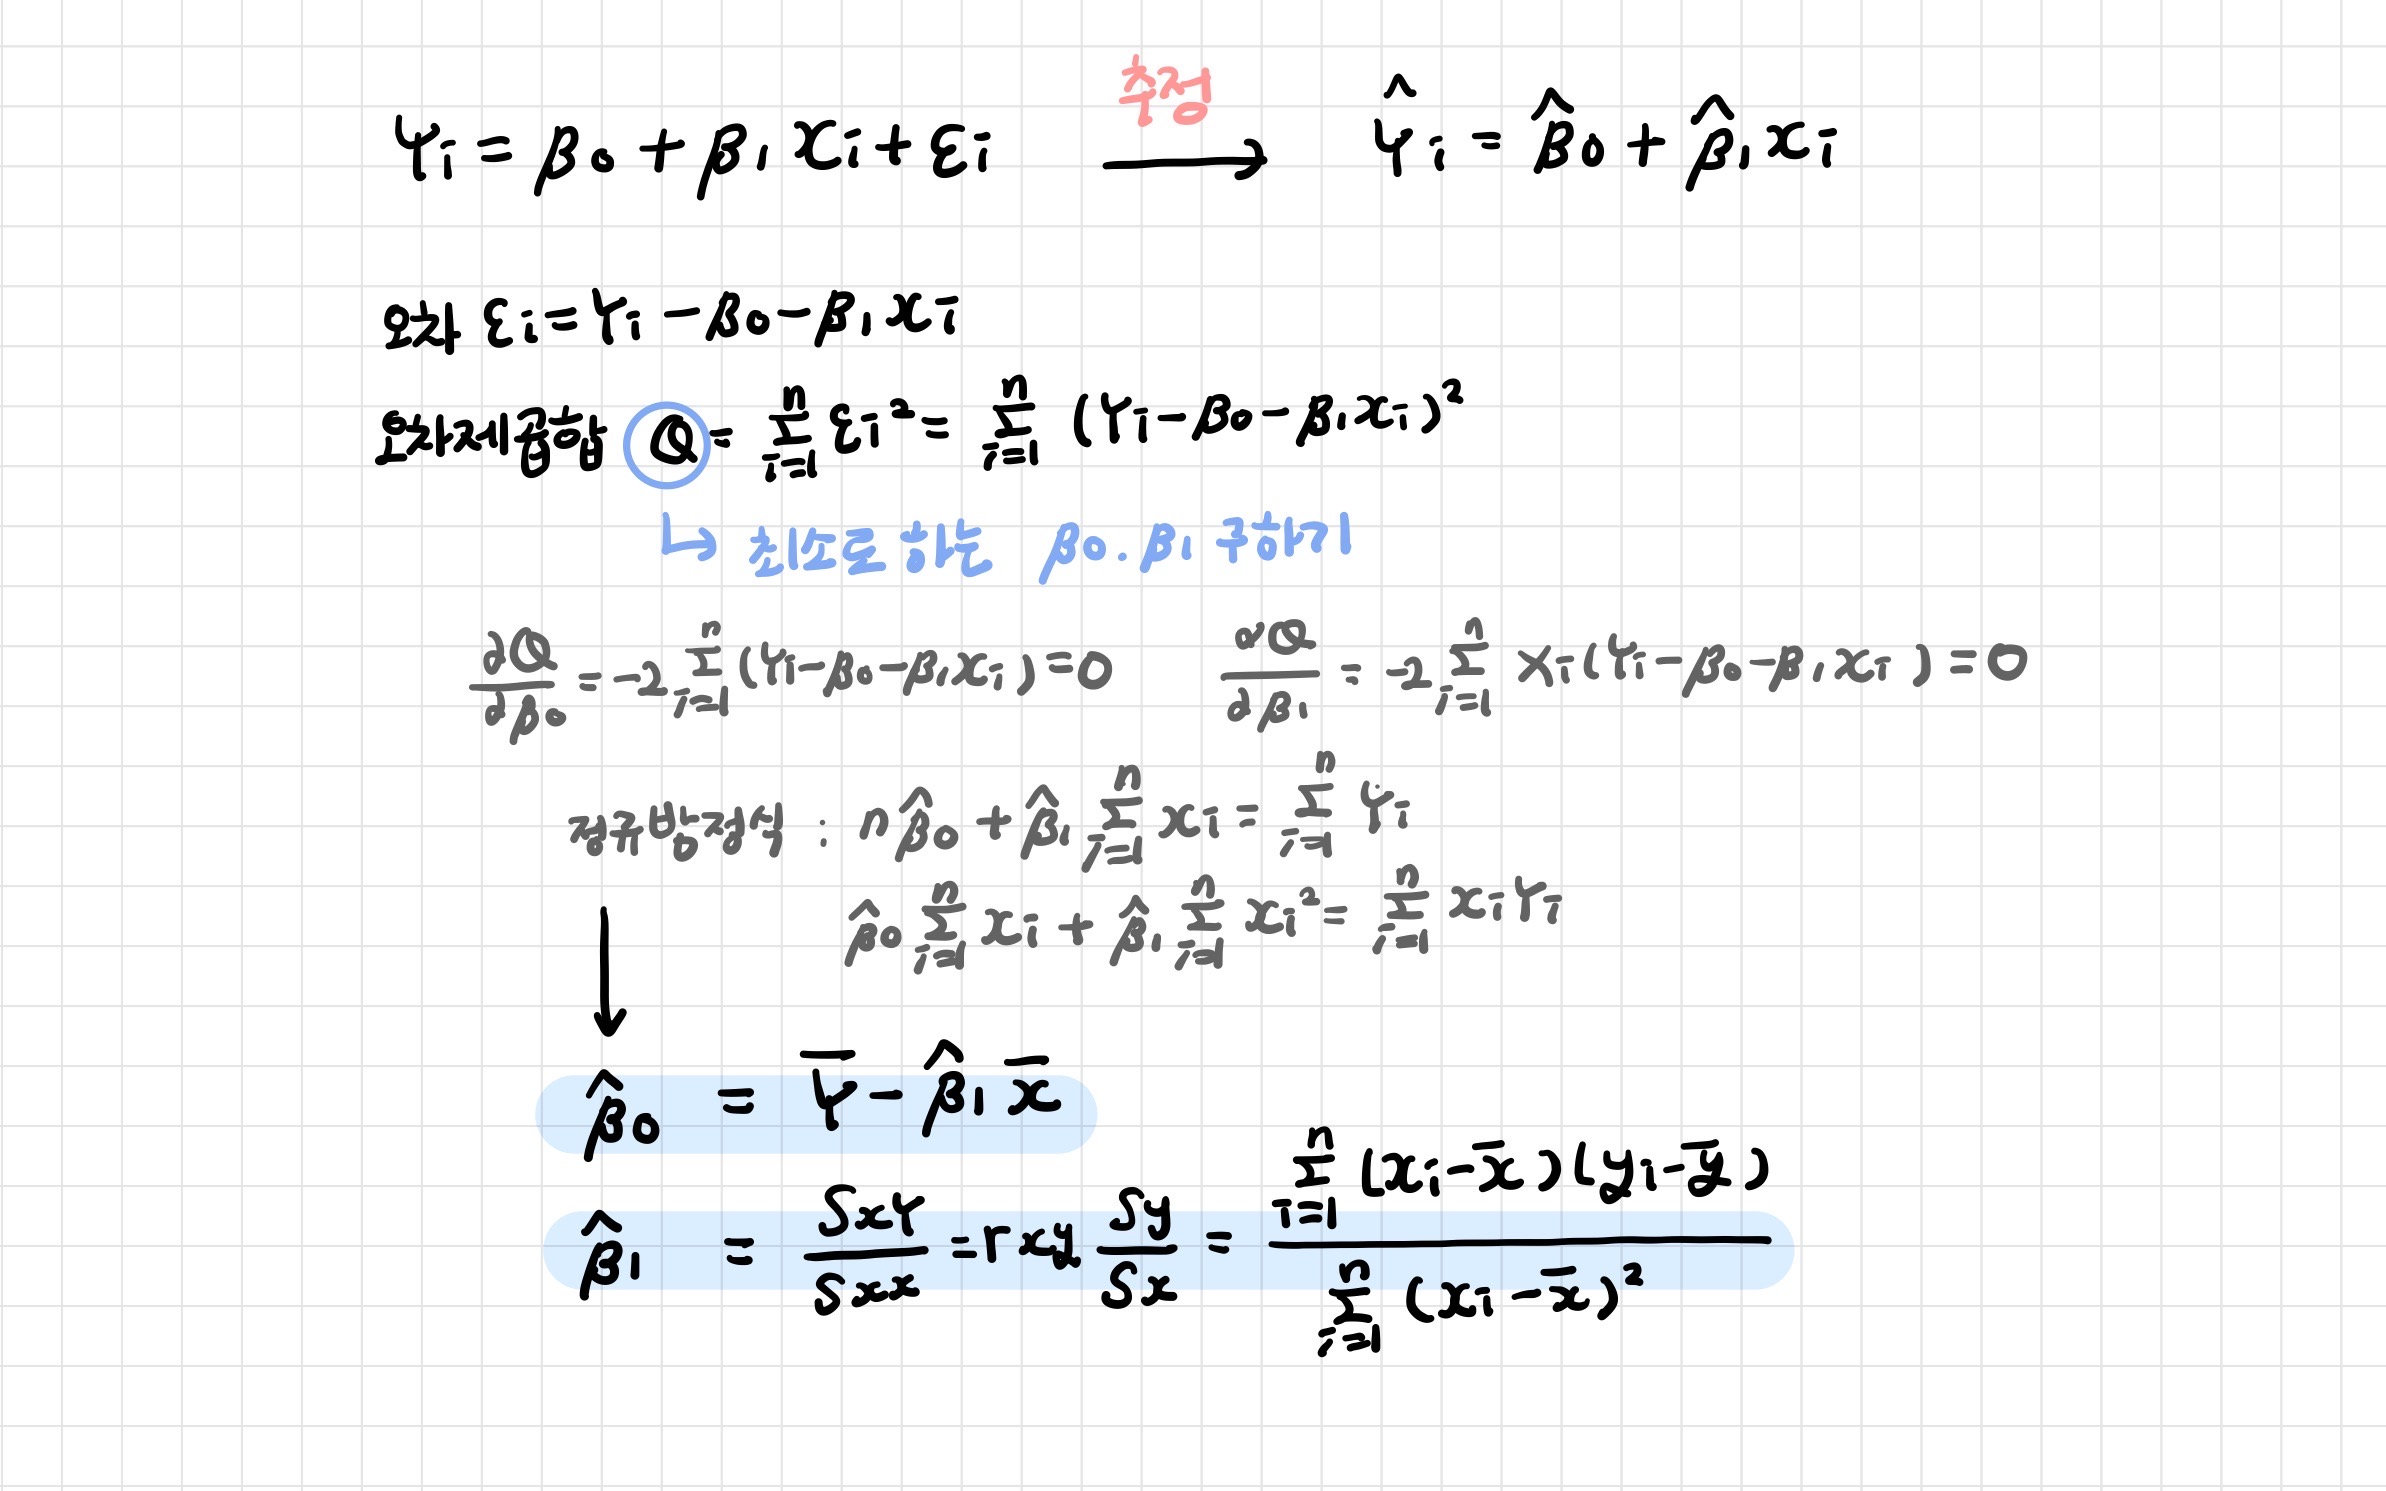 Yi = β0 + β1 xi + εi 추정 → Ŷi = β̂0 + β̂1 xi
오차 εi = Yi − β0 − β1 xi
오차제곱합 Q = Σ_{i=1}^{n} εi² = Σ_{i=1}^{n} (Yi − β0 − β1 xi)²
↳ 최소로 하는 β0. β1 구하기
∂Q/∂β0 = −2 Σ_{i=1}^{n} (Yi − β0 − β1 xi) = 0 ∂Q/∂β1 = −2 Σ_{i=1}^{n} Xi (Yi − β0 − β1 xi) = 0
정규방정식 : n β̂0 + β̂1 Σ_{i=1}^{n} xi = Σ_{i=1}^{n} Yi
β̂0 Σ_{i=1}^{n} xi + β̂1 Σ_{i=1}^{n} xi² = Σ_{i=1}^{n} xi Yi
↓
β̂0 = Ȳ − β̂1 x̄
β̂1 = SxY/Sxx = rxy Sy/Sx = Σ_{i=1}^{n} (xi − x̄)(yi − ȳ) / Σ_{i=1}^{n} (xi − x̄)²